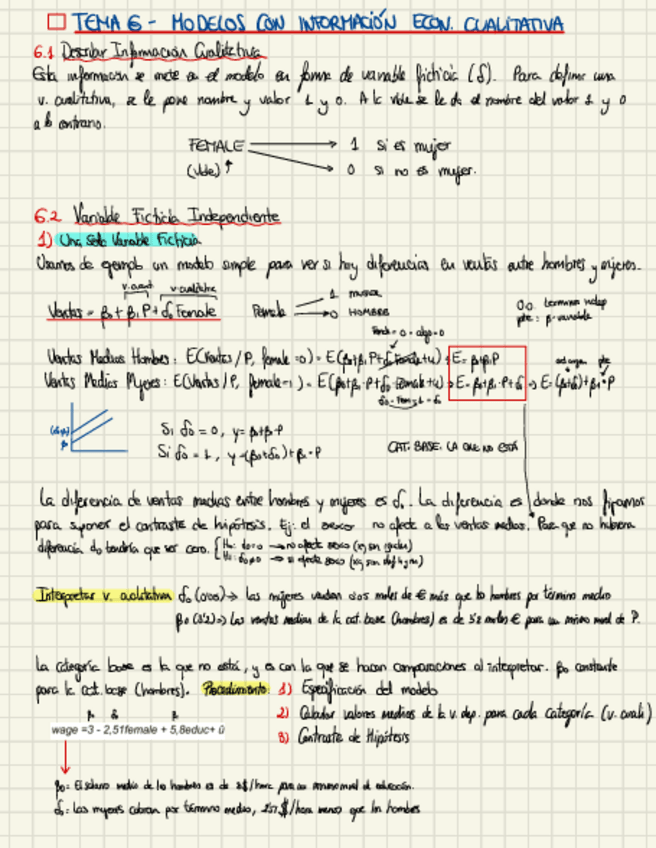 TEMA 6 - MODELOS CON INFORMACIÓN ECON. CUALITATIVA
6.1 Describir Información Cualitativa
Esta información se mete en el modelo en forma de variable ficticia (δ). Para definir una
v. cualitativa, se le pone nombre y valor 1 y 0. A la vble se le da el nombre del valor 1 y 0
a lo contrario.
FEMALE → 1 si es mujer
(vble) ↑ → 0 si no es mujer.
6.2 Variable Ficticia Independiente
1) Una Sola Variable Ficticia
Usamos de ejemplo un modelo simple para ver si hay diferencias en ventas entre hombres y mujeres.
v. cuant v. cualitativa
Ventas = β0 + β1 P + δ0 Female Female 1 MUJER
0 HOMBRE
Ventas Medias Hombres: E(Ventas/P, female=0) = E(β0+β1P+δ0 Female+u) E = β0+β1P
Ventas Medias Mujeres: E(Ventas/P, female=1) = E(β0+β1·P+δ0·Female+u) → E=β0+β1·P+δ0 → E=(β0+δ0)+β1·P
Si δ0 = 0, y = β0+β1·P
Si δ0 = 1, y = (β0+δ0)+β1·P
CAT. BASE: LA QUE NO ESTÁ
La diferencia de ventas medias entre hombres y mujeres es δ0. La diferencia es donde nos fijamos
para suponer el contraste de hipótesis. Ej: el sexo no afecta a las ventas medias. Para que no hubiera
diferencia δ0 tendría que ser cero. H0: δ0=0 → no afecta sexo (xq son iguales)
H1: δ0≠0 → sí afecta sexo
Interpretar v. cualitativa δ0 → las mujeres venden miles de € más que los hombres por término medio
β0 (3'2) → Las ventas medias de la cat. base (hombres) es de 3'2 miles € para un mismo nivel de P.
La categoría base es la que no está, y es con la que se hacen comparaciones al interpretar. β0 constante
para la cat. base (hombres). Procedimiento: 1) Especificación del modelo
2) Calcular valores medios de la v. dep. para cada categoría (v. cuali)
3) Contraste de Hipótesis
wage =3 - 2,51female + 5,8educ+ û
β0: El salario medio de los hombres es de 3$/hora para un mismo nivel de educación.
δ0: Las mujeres cobran por término medio, 2'51 $/hora menos que los hombres